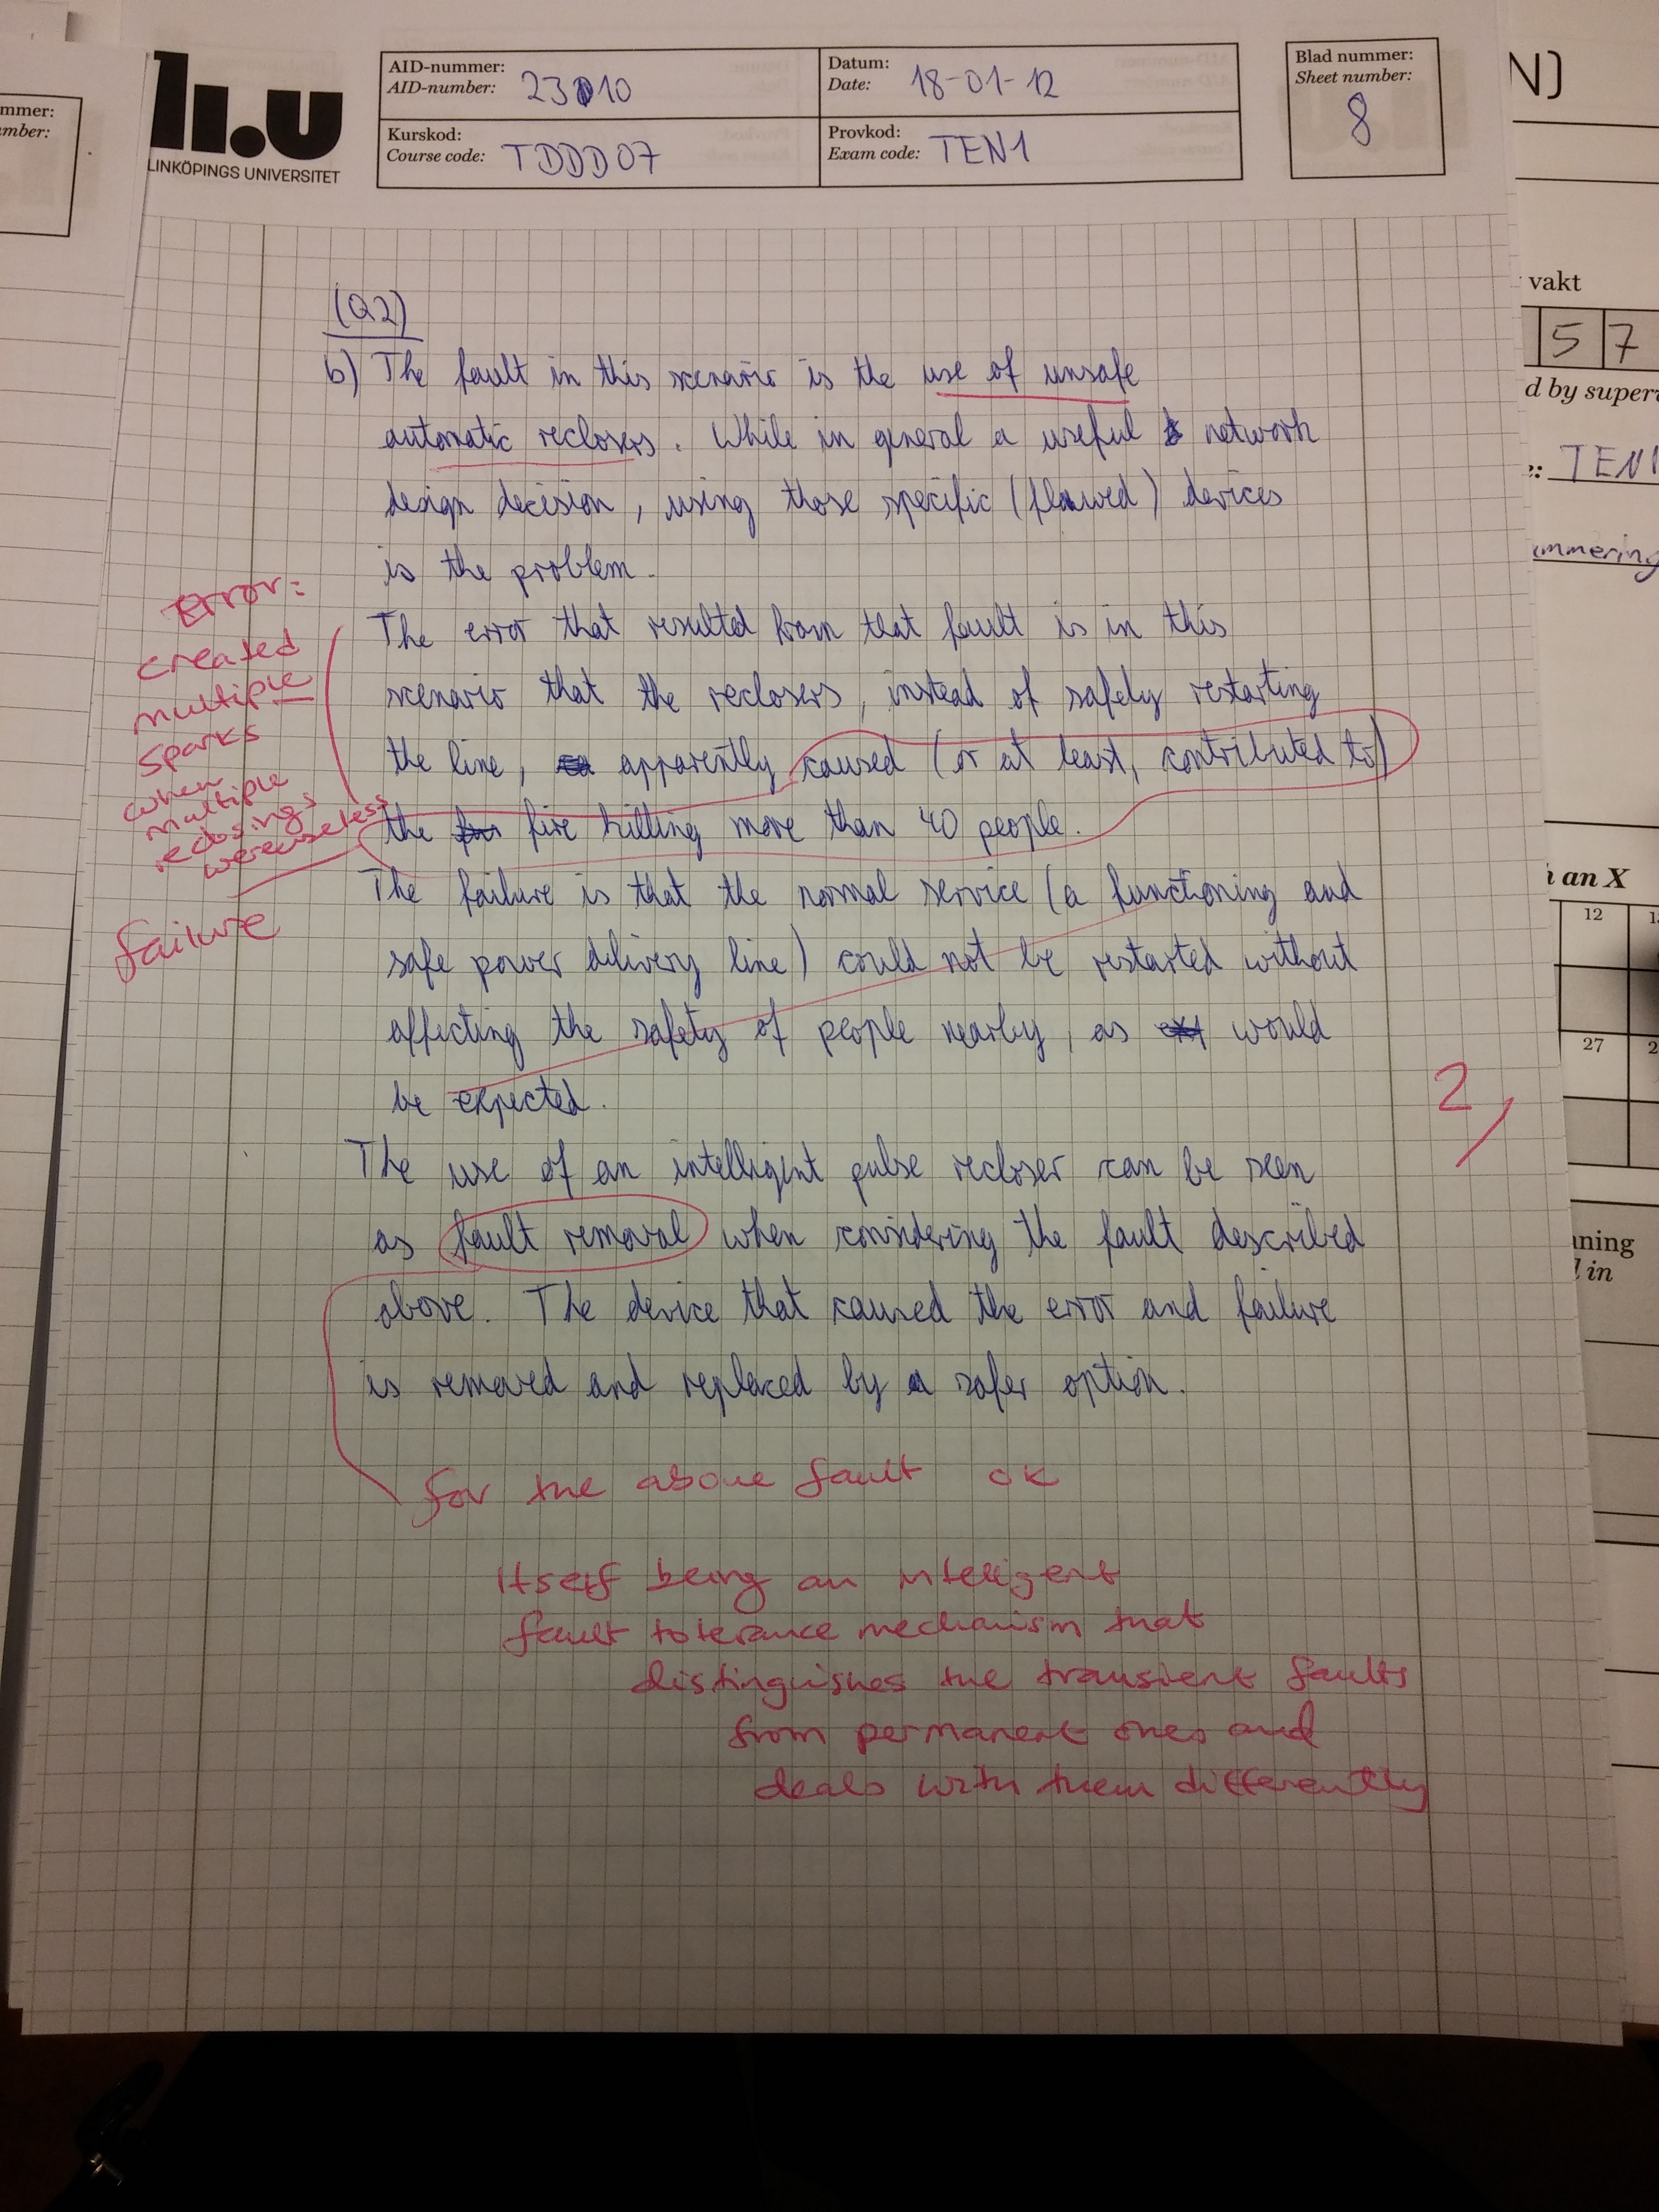 LINKÖPINGS UNIVERSITET
AID-nummer:
AID-number: 23010
Datum:
Date: 18-01-12
Kurskod:
Course code: TDDD07
Provkod:
Exam code: TEN1
Blad nummer:
Sheet number:
8
(Q2)
b) The fault in this scenario is the use of unsafe
automatic reclosers. While in general a useful network
design decision, using those specific (flawed) devices
is the problem.
The error that resulted from that fault is in this
scenario that the reclosers, instead of safely restarting
the line, apparently caused (or at least, contributed to)
the fire killing more than 40 people.
The failure is that the normal service (a functioning and
safe power delivery line) could not be restarted without
affecting the safety of people nearby, as would
be expected.
The use of an intelligent pulse recloser can be seen
as fault removal when considering the fault described
above. The device that caused the error and failure
is removed and replaced by a safer option.
Error:
created
multiple
sparks
when
multiple
reclosings
were useless
failure
2
for the above fault ok
Itself being an intelligent
fault tolerance mechanism that
distinguishes the transient faults
from permanent ones and
deals with them differently
mmer:
mber:
N)
vakt
5 7
d by super
: TEN1
mmering
an X
12
27
ning
l in